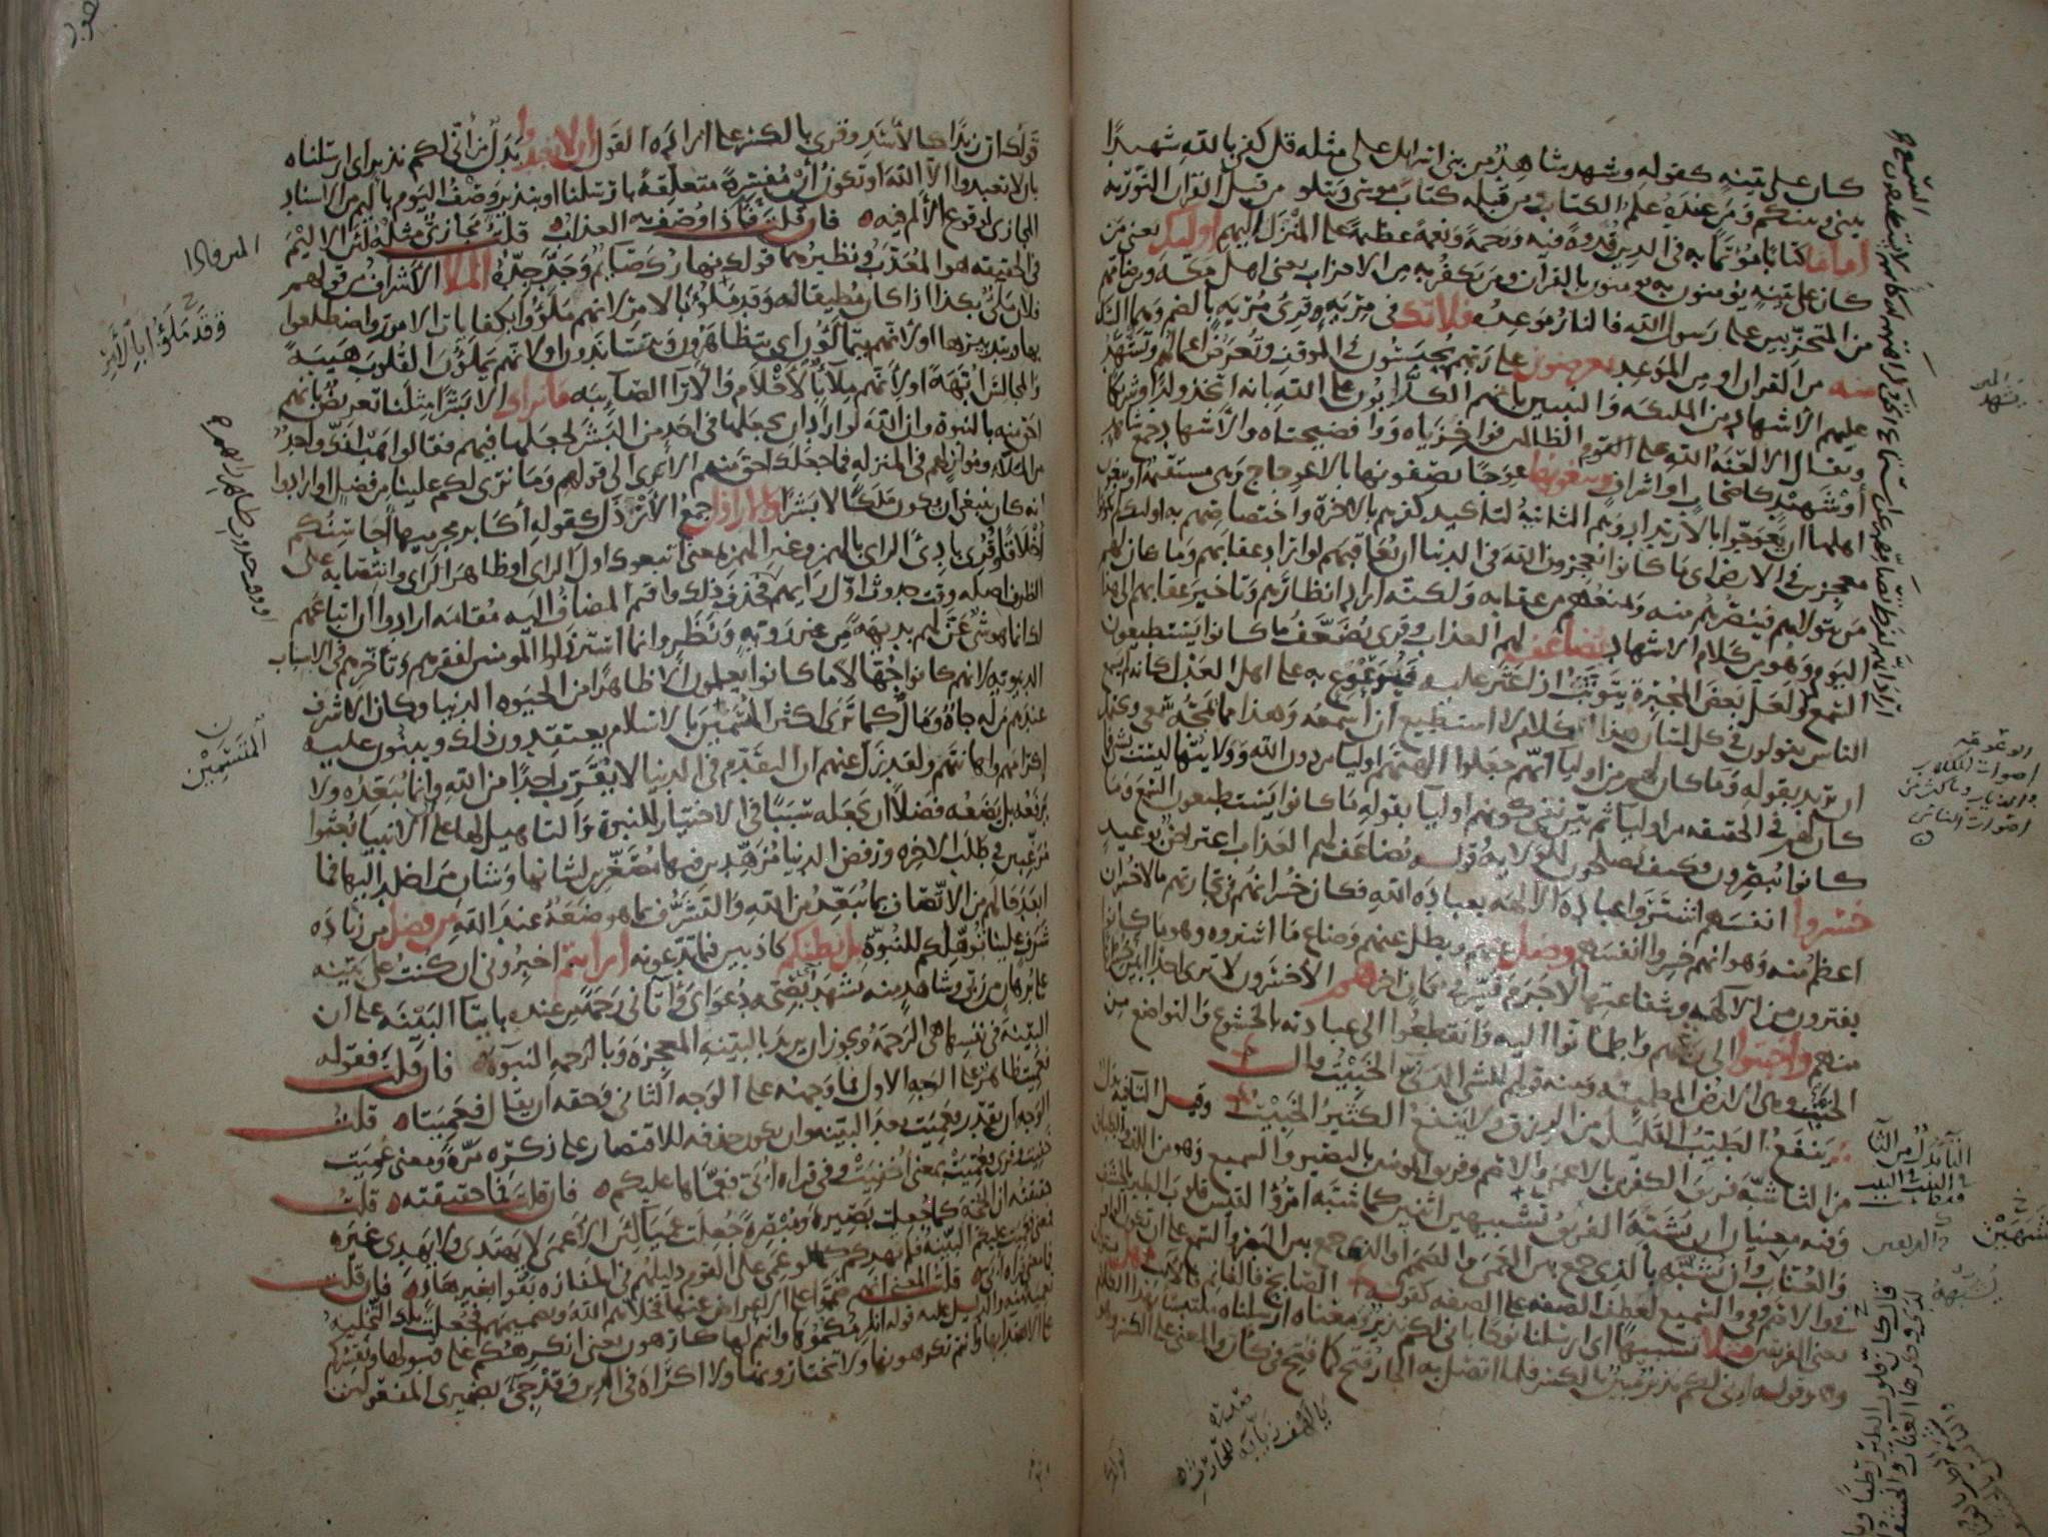 كان على بينة كقوله وشهد شاهد من بني اسرائيل على مثله قل كفى بالله شهيدا
بيني وبينكم ومن عنده علم الكتاب ومن قبله كتاب موسى ويتلو من قبل القران التورية
اماما كتابا مؤتما به في الدين قدوة فيه ورحمة ونعمة عظيمة على المنزل اليهم اوليك يعني من
كان على بينة يؤمنون به يومنون بالقرآن ومن يكفر به من الاحزاب يعني اهل مكة ومن ضامهم
من المتحزبين على رسول الله فالنار موعده فلا تك في مرية وقرئ مرية بالضم وهما الشك
منه من القران او من الموعد يعرضون على ربهم يحبسون في الموقف وتعرض اعمالهم ويشهد
عليهم الاشهاد من الملئكة والنبيين بانهم الكذابون على الله بانه اتخذ ولدا وشريكا
ويقال الا لعنة الله على القوم الظالمين فواخزياه ووا فضيحتاه والاشهاد جمع شاهد
او شهيد كاصحاب او اشراف ويبغونها عوجا يصفونها بالاعوجاج وهي مستقيمة او يبغون
اهلها ان يعوجوا بالارتداد وهم الثانية لتاكيد كفرهم بالاخرة واختصاصهم به اوليك لم يكونوا
معجزين في الارض اي ما كانوا يعجزون الله في الدنيا ان يعاقبهم لو اراد عقابهم وما كان لهم
من يتولاهم فينصرهم منه ويمنعهم من عقابه ولكنه اراد انظارهم وتاخير عقابهم الى هذا
اليوم وهو من كلام الاشهاد يضاعف لهم العذاب وقرئ يضعف ما كانوا يستطيعون
السمع ولعل بعض المجبرة يتوثب اذا عثر عليه فيوعوع به على اهل العدل كانه لم يسمع
الناس يقولون في كل لسان هذا الكلام لا استطيع ان اسمعه وهذا مما يمجه سمعي ويحتمل
ان يريد بقوله وما كان لهم من اوليا انهم جعلوا الهتهم اوليا من دون الله وولايتها ليست بشئ فما
كان لهم في الحقيقة من اوليا ثم بين نفي كونهم اوليا بقوله ما كانوا يستطيعون السمع وما
كانوا يبصرون وكيف يصلحون للولاية وقوله يضاعف لهم العذاب اعتراض بوعيد
خسروا انفسهم اشتروا عبادة الالهة بعبادة الله فكان خسرانهم في تجارتهم ما لا خسران
اعظم منه وهو انهم خسروا انفسهم وضل عنهم وبطل عنهم وضاع ما اشتروه وهو ما كانوا
يفترون من الالهة وشفاعتها لا جرم فسر في مكان اخر هم الاخسرون لا ترى احدا ابين خسرانا
منهم واخبتوا الى ربهم واطمانوا اليه وانقطعوا الى عبادته بالخشوع والتواضع من
الخبت وهي الارض المطمئنة ومنه قولهم للشئ الدني الخبيت قال
ينفع الطيب القليل من الرزق ولا ينفع الكثير الخبيت وقيل التا فيه بدل
من الثا شبه فريق الكفرين بالاعمى والاصم وفريق المومنين بالبصير والسميع وهو من اللف والطباق
وفيه معنيان ان يشبه الفريق تشبيهين اثنين كما شبه امرؤ القيس قلوب الطير بالحشف
والعناب وان يشبه بالذي جمع بين العمى والصمم او الذي جمع بين البصر والسمع على ان تكون الواو
في والاصم وفي والسميع لعطف الصفة على الصفة كقوله الصابح فالغانم فالايب هل يستويان
يعني الفريقين مثلا تشبيها اي ارسلنا نوحا باني لكم نذير ومعناه ارسلناه ملتبسا بهذا الكلام
وهو قوله اني لكم نذير مبين بالكسر فلما اتصل به الجار فتح كما فتح في كان والمعنى على الكسر وهو
قولك ان زيدا كالاسد وقرئ بالكسر على ارادة القول ان لا تعبدوا بدل من اني لكم نذير اي ارسلناه
بان لا تعبدوا الا الله او تكون ان مفسرة متعلقة بارسلنا او بنذير وصف اليوم باليم من الاسناد
المجازي لوقوع الالم فيه فان قلت فاذا وصف به العذاب قلت مجازي مثله لان الاليم
في الحقيقة هو المعذب ونظيرهما قولك نهارك صايم وجد جده الملا الاشراف من قولهم
فلان ملئ بكذا اذا كان مطيقا له وقد ملؤ بالامر لانهم ملؤوا بكفايات الامور واضطلعوا
بها وبتدبيرها او لانهم يتمالؤن اي يتظاهرون ويتساندون او لانهم يملؤن القلوب هيبة
والمجالس ابهة او لانهم ملاء بالاحلام والارا الصايبة ما نراك الا بشرا مثلنا تعريض بانهم
احق منه بالنبوة وان الله لو اراد ان يجعلها في احد من البشر لجعلها فيهم فقالوا هب انك واحد
من الملا وموازيهم في المنزلة فما جعلك احق منهم الا ترى الى قولهم وما نرى لكم علينا من فضل او ارادوا
انه كان ينبغي ان يكون ملكا لا بشرا والاراذل جمع الارذل كقوله اكابر مجرميها احاسنكم
اخلاقا وقرئ بادي الراي بالهمز وغير الهمز بمعنى اتبعوك اول الراي او ظاهر الراي وانتصابه على
الظرف اصله وقت حدوث اول رايهم فحذف ذلك واقيم المضاف اليه مقامه ارادوا ان اتباعهم
لك انما هو شئ عن لهم بديهة من غير روية ونظر وانما استرذلوا المومنين لفقرهم وتاخرهم في الاسباب
الدنيوية لانهم كانوا جهالا ما كانوا يعلمون الا ظاهرا من الحيوة الدنيا وكان الاشرف
عندهم من له جاه ومال كما ترى اكثر المتسمين بالاسلام يعتقدون ذلك ويبنون عليه
اكرامهم واهانتهم ولقد زل عنهم ان التقدم في الدنيا لا يقرب احدا من الله وانما يبعده ولا
يرفعه بل يضعه فضلا ان يجعله سببا في الاختيار للنبوة والتاهيل لها على ان الانبيا بعثوا
مرغبين في طلب الاخرة ورفض الدنيا مزهدين فيها مصغرين لشانها وشان من اخلد اليها فما
ابعد حالهم من الاتصاف بما يبعد من الله والتشرف بما هو ضعة عند الله من فضل من زيادة
شرف علينا تؤهلكم للنبوة بل نظنكم كاذبين فيما تدعونه ارايتم اخبروني ان كنت على بينة
على برهان من ربي وشاهد منه يشهد بصحة دعواي واتاني رحمة من عنده بايتا البينة على ان
البينة في نفسها هي الرحمة ويجوز ان يريد بالبينة المعجزة وبالرحمة النبوة فان قلت فقوله
فعميت ظاهر على الوجه الاول فما وجهه على الوجه الثاني وحقه ان يقال فعميتا قلت
الوجه ان يقدر فعميت بعد البينة وان يكون حذفه للاقتصار على ذكره مرة ومعنى عميت
خفيت وقرئ فعميت بمعنى اخفيت وفي قراة ابي فعماها عليكم فان قلت فما حقيقته قلت
حقيقته ان الحجة كما جعلت بصيرة ومبصرة جعلت عميا لان الاعمى لا يهتدي ولا يهدي غيره
فمعنى فعميت عليكم البينة فلم تهدكم كما لو عمي على القوم دليلهم في المفازة بقوا بغير هاد فان قلت
فما معنى قراة ابي قلت المعنى انهم صمموا على الاعراض عنها فخلاهم الله وتصميمهم فجعلت تلك التخلية
تعمية منه والدليل عليه قوله انلزمكموها وانتم لها كارهون يعني انكرهكم على قبولها ونقسركم
على الاهتدا بها وانتم تكرهونها ولا تختارونها ولا اكراه في الدين وقد جئ بضميري المفعولين
الوعوعة
اصوات الكلاب
اصوات الناس
المتسمين
يا لهف زيابة للحارث